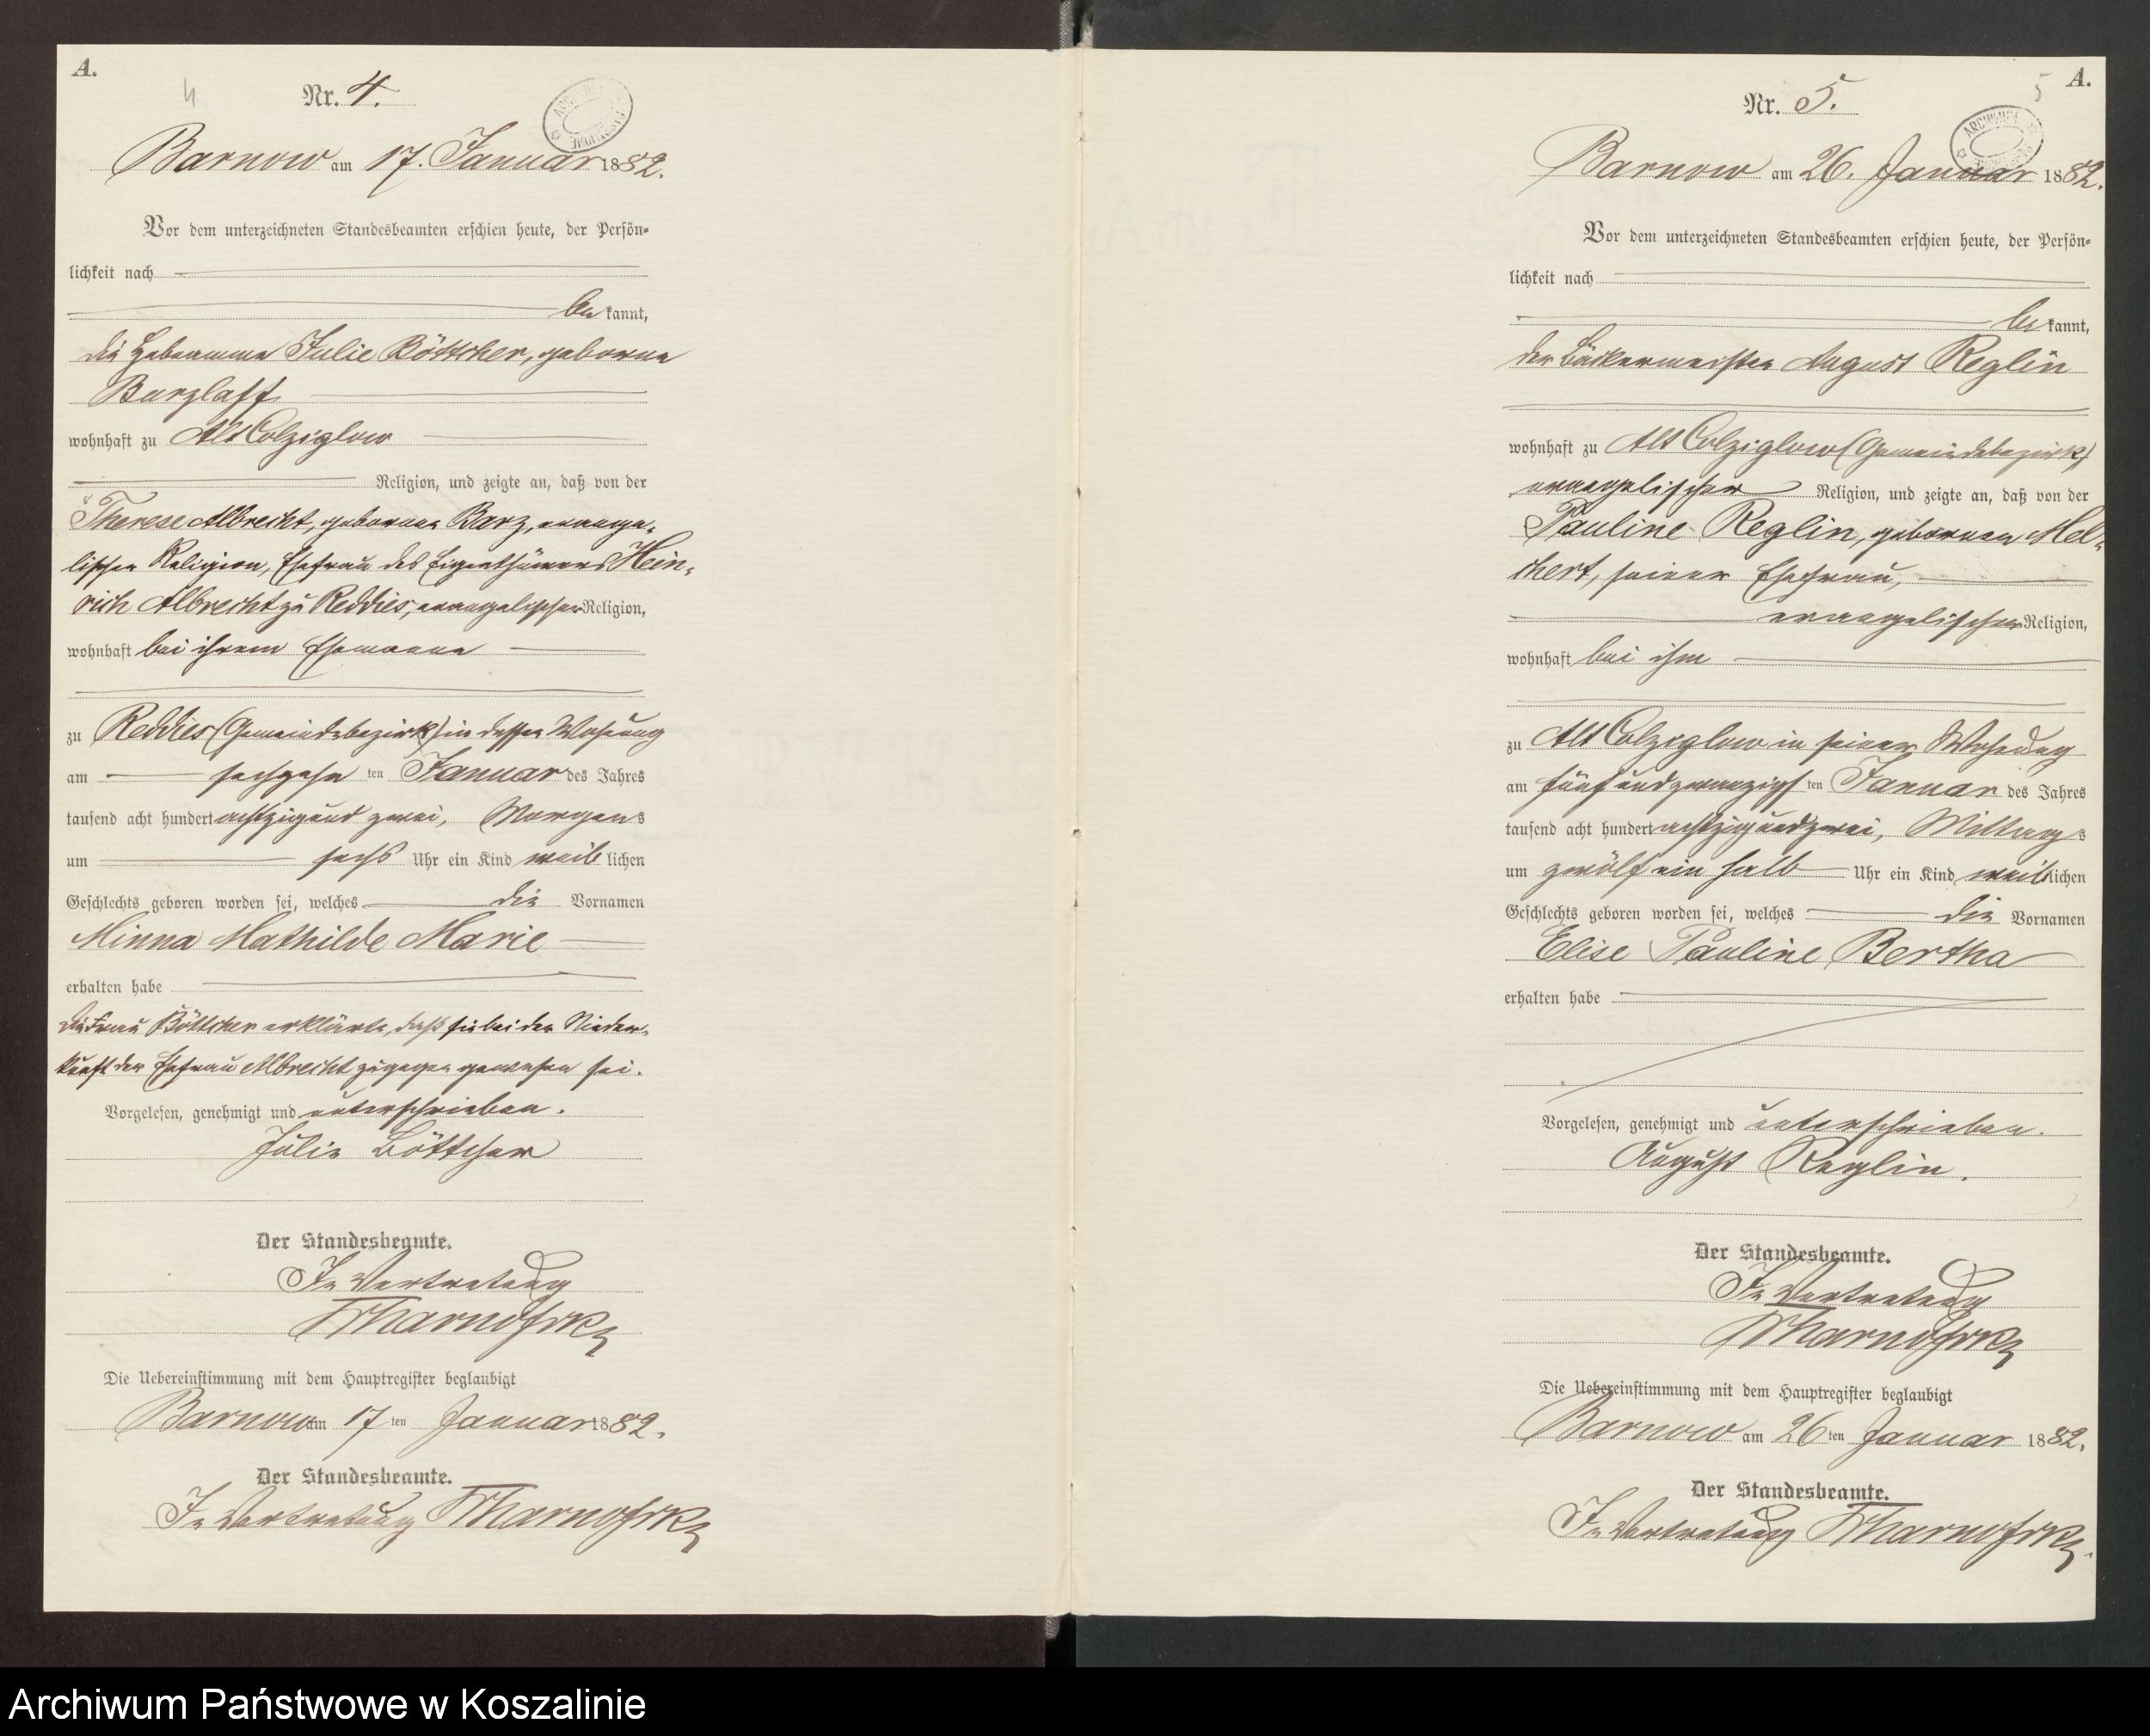 A.
4
Nr. 4.
Barnow am 17. Januar 1882.
Vor dem unterzeichneten Standesbeamten erschien heute, der Persön-
lichkeit nach
bekannt,
die Hebeamme Julie Böttcher, geborne
Barzlaff
wohnhaft zu Alt Colziglow
Religion, und zeigte an, daß von der
Therese Albrecht, gebornen Barz, evange-
lischer Religion, Ehefrau des Eigenthümers Hein-
rich Albrecht zu Reddies, evangelischer Religion,
wohnhaft bei ihrem Ehemanne
zu Reddies (Gemeindebezirk) in dessen Wohnung
am sechzehn ten Januar des Jahres
tausend acht hundert achtzig und zwei, Morgens
um sechs Uhr ein Kind weiblichen
Geschlechts geboren worden sei, welches die Vornamen
Minna Mathilde Marie
erhalten habe
Die Frau Böttcher erklärte, daß sie bei der Nieder-
kunft der Ehefrau Albrecht zugegen gewesen sei.
Vorgelesen, genehmigt und unterschrieben.
Julie Böttcher
Der Standesbeamte.
In Vertretung
Die Uebereinstimmung mit dem Hauptregister beglaubigt
Barnow am 17 ten Januar 1882.
Der Standesbeamte.
In Vertretung
5
A.
Nr. 5.
Barnow am 26. Januar 1882.
Vor dem unterzeichneten Standesbeamten erschien heute, der Persön-
lichkeit nach
bekannt,
der Bäckermeister August Reglin
wohnhaft zu Alt Colziglow (Gemeindebezirk)
evangelischer Religion, und zeigte an, daß von der
Pauline Reglin, gebornen Mel-
chert, seiner Ehefrau,
evangelischer Religion,
wohnhaft bei ihm
zu Alt Colziglow in seiner Wohnung
am fünf und zwanzigsten Januar des Jahres
tausend acht hundert achtzig und zwei, Mittags
um zwölf ein halb Uhr ein Kind weiblichen
Geschlechts geboren worden sei, welches die Vornamen
Elise Pauline Bertha
erhalten habe
Vorgelesen, genehmigt und unterschrieben.
August Reglin.
Der Standesbeamte.
In Vertretung
Die Uebereinstimmung mit dem Hauptregister beglaubigt
Barnow am 26 ten Januar 1882.
Der Standesbeamte.
In Vertretung
Archiwum Państwowe w Koszalinie